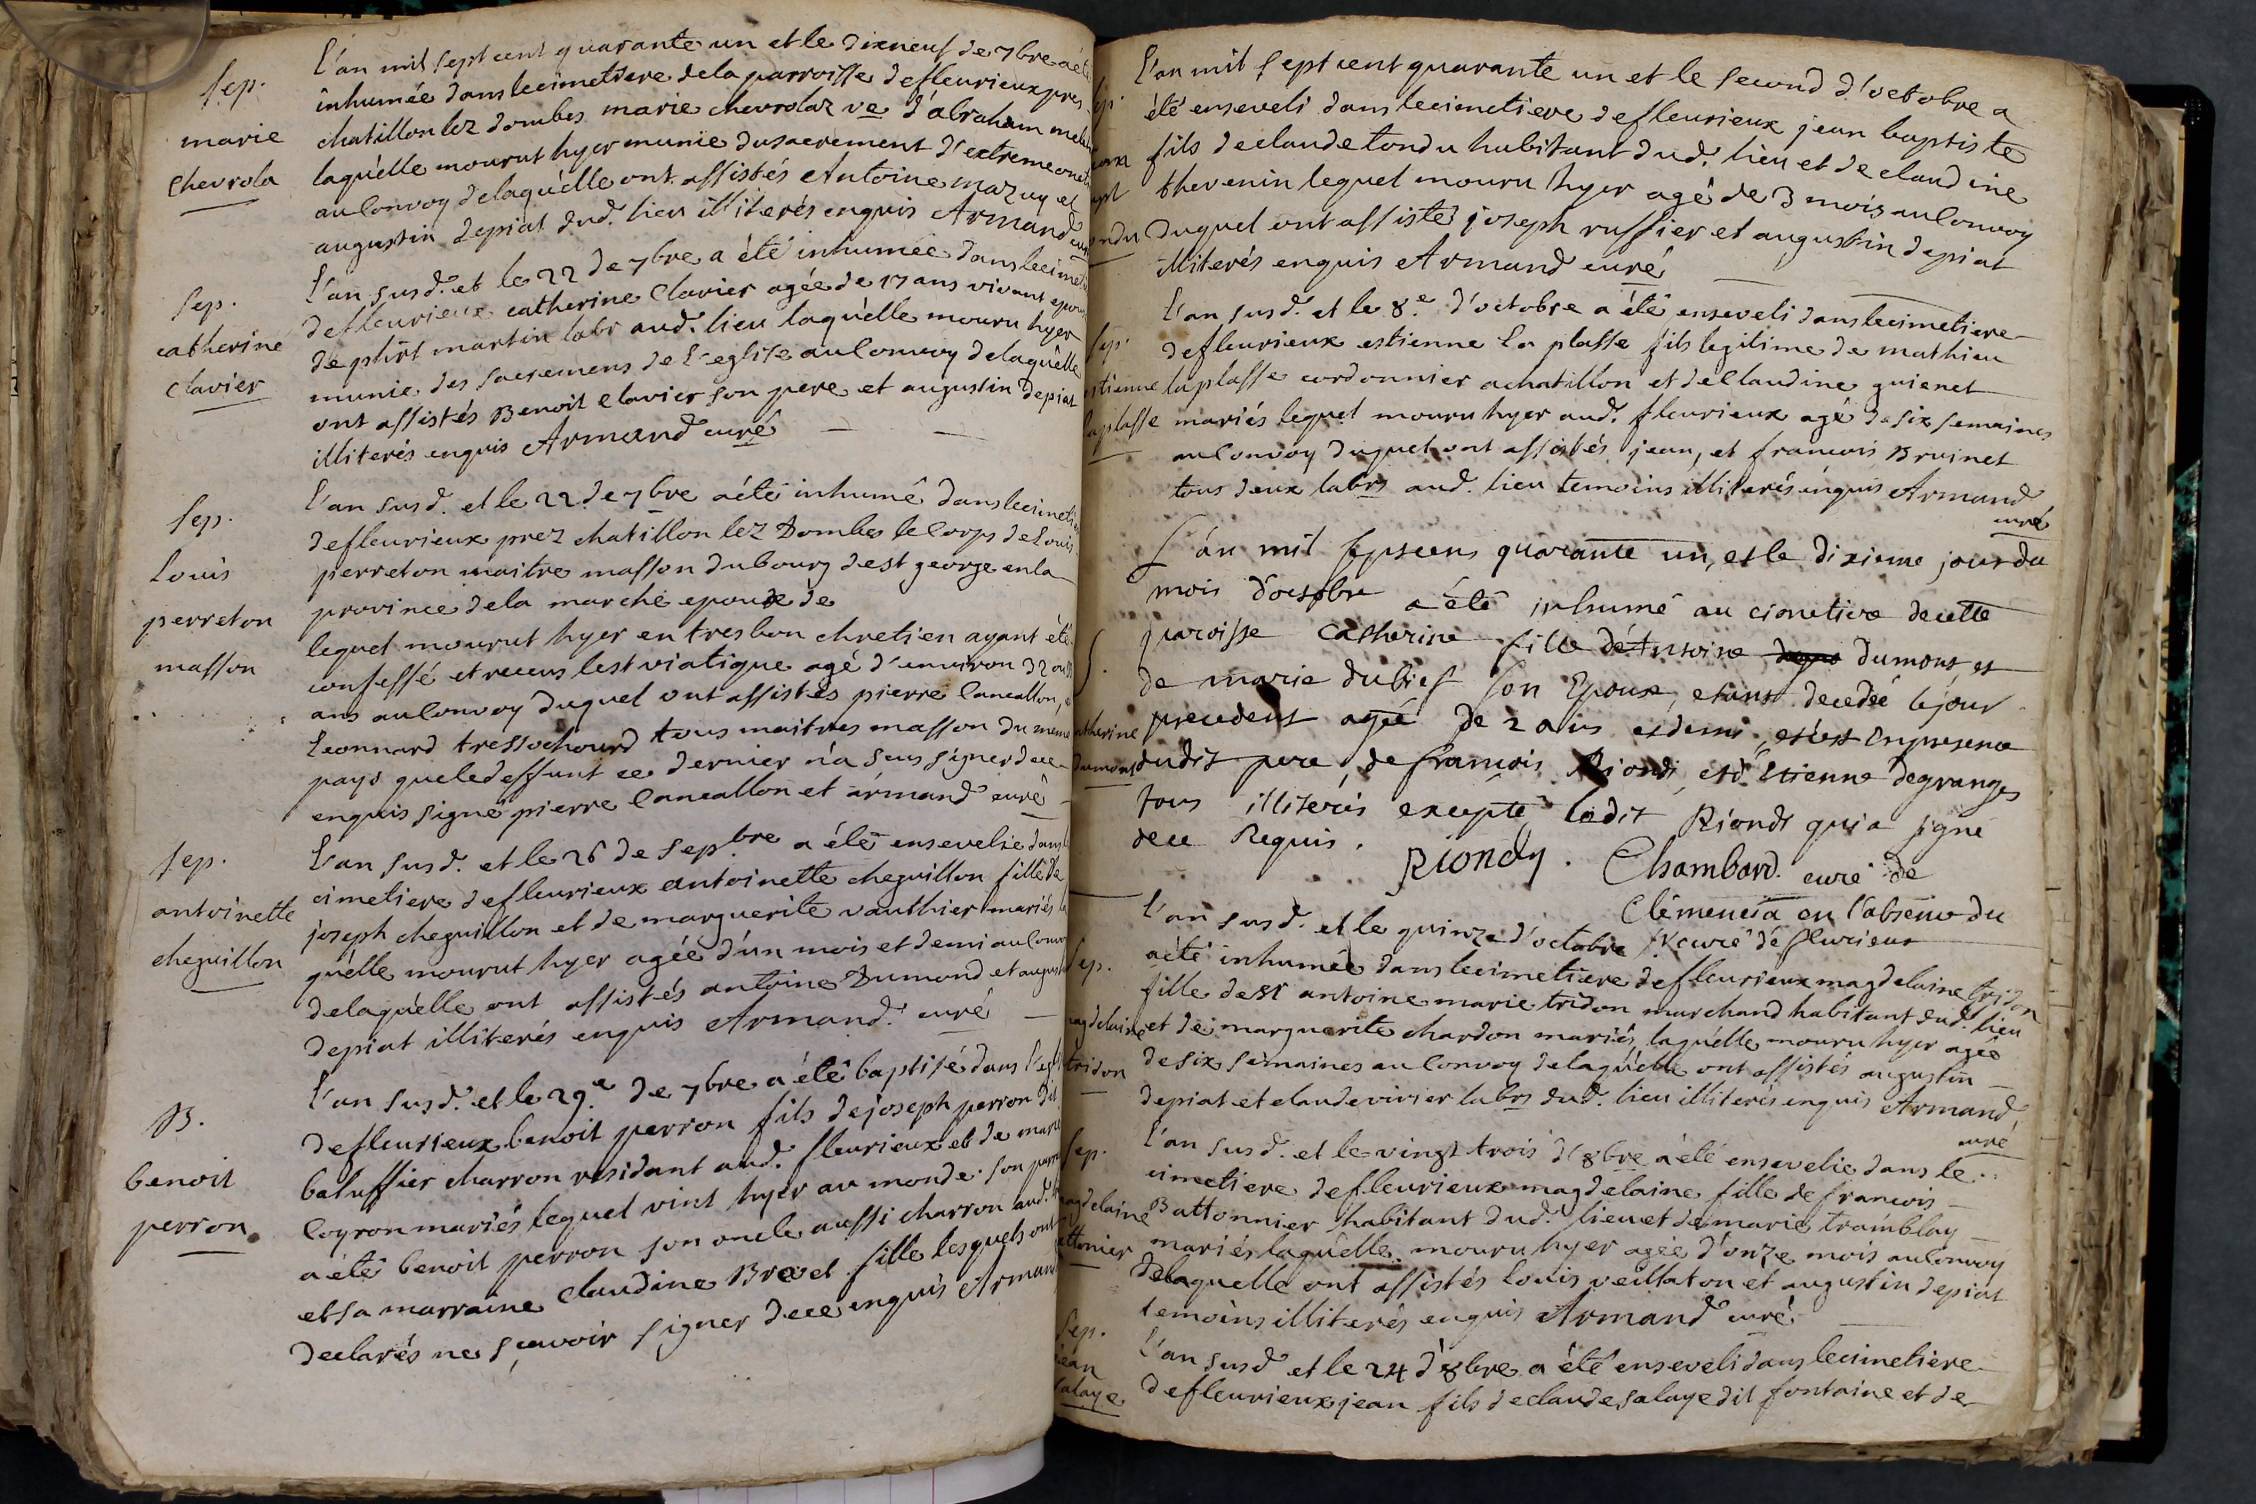 Sep.
marie
Chevrola
L'an mil sept cent quarante un et le dixneuf de 7bre a été
inhumée dans le cimetiere de la parroisse de fleurieux pres
chatillon lez dombes marie chevrolaz ve d'abraham
laquelle mourut hyer munie du sacrement d'extreme
au Convoy de laquelle ont assistés Antoine mazuy et
augustin depiat dud. lieu illiterés enquis Armand curé
Sep.
catherine
Clavier
L'an susd. et le 22 de 7bre a été inhumée dans le
de fleurieux catherine Clavier agée de 17 ans vivant
de martin labr aud. lieu laquelle mouru hyer
munie des sacremens de L'eglise au Convoy de laquelle
ont assistés Benoit Clavier son pere et augustin depiat
illiterés enquis Armand curé
Sep.
Louis
perreton
masson
L'an susd. et le 22 de 7bre a été inhumé dans le
de fleurieux prez chatillon lez Dombes le Corps de Louis
perreton maitre masson du bourg de st george en la
province de la marche epoux de
lequel mourut hyer en tres bon chretien ayant été
confessé et receus le st viatique agé d'environ 32 ou
ans au Convoy duquel ont assistés pierre Lancallon,
Leonnard tressochourd tous maitres masson du meme
pays que le deffunt ce dernier n'a seus signer de ce
enquis signé pierre Lancallon et armand curé
Sep.
antoinette
cheguillon
L'an susd. et le 26 de Sepbre a été ensevelie dans
cimetiere de fleurieux antoinette cheguillon fille de
joseph cheguillon et de marguerite vauthier mariés la
quelle mourut hyer agée d'un mois et demi au
de laquelle ont assistés antoine Dumond et
depiat illiterés enquis Armand. curé
B.
benoit
perron
L'an susd. et le 29.e de 7bre a été baptisé dans
de fleurieux benoit perron fils de joseph perron dit
baluffier charron residant aud. fleurieux et de marie
Coyron mariés lequel vint hyer au monde. son
a été benoit perron son oncle aussi charron aud.
et sa marraine Claudine Brevet fille lesquels ont
declarés ne sçavoir signer de ce enquis Armand
L'an mil sept cent quarante un et le second d'octobre a
été enseveli dans le cimetiere de fleurieux jean baptiste
fils de claude tondu habitant dud. lieu et de claudine
thevenin lequel mouru hyer agé de 3 mois au Convoy
duquel ont assisté joseph ruffier et augustin depiat
illiterés enquis Armand curé
Sep.
estienne
laplasse
L'an susd. et le 8.e d'octobre a été enseveli dans le cimetiere
de fleurieux estienne La plasse fils legitime de mathieu
laplasse cordonnier a chatillon et de Claudine guienet
mariés lequel mouru hyer aud. fleurieux agé de six semaines
au Convoy duquel ont assistés jean, et francois Bruinet
tous deux labrs aud. lieu temoins illiterés enquis Armand
curé
S.
catherine
dumont
L'an mil septcens quarante un, et le dixieme jour du
mois d'octobre a été inhumé au cimetiere de cette
paroisse Catherine fille d'Antoine dumont et
de marie dubief son Epouse, etant decedée le jour
precedent agée de 2 ans et demi, et c'est en presence
dudit pere, de francois Riondi, et d'Etienne degranges
tous illiterés excepté ledit Riondi qui a signé
de ce Requis. Riondy. Chambard. curé de
Clémencia en l'absence du
Sr curé de fleurieux
Sep.
magdelaine
tridon
L'an susd. et le quinze d'octobre
a été inhumée dans le cimetiere de fleurieux magdelaine tridon
fille de sr antoine marie tridon marchand habitant dud. lieu
et de marguerite chardon mariés, laquelle mouru hyer agée
de six semaines au Convoy de laquelle ont assistés augustin
depiat et claude vivier labrs dud. lieu illiterés enquis Armand
curé
Sep.
magdelaine
L'an susd. et le vingt trois d'8bre a été ensevelie dans le
cimetiere de fleurieux magdelaine fille de francois
Battonnier habitant dud. lieu et de marie tramblay
mariés laquelle mouru hyer agée d'onze mois au Convoy
de laquelle ont assistés louis veillaton et augustin depiat
temoins illiterés enquis Armand curé
Sep.
jean
Salaye
L'an susd. et le 24 d'8bre a été enseveli dans le cimetiere
de fleurieux jean fils de claude salaye dit fontaine et de